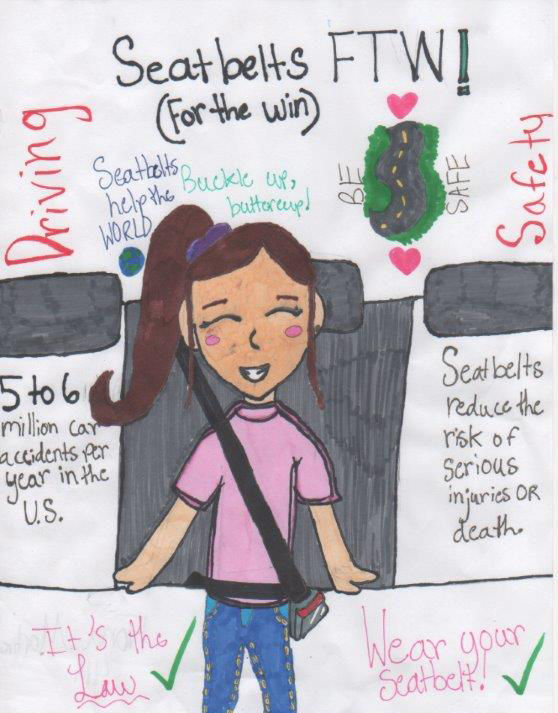 Seatbelts FTW!
(For the win)
Driving
Safety
Seatbelts
help the
WORLD
Buckle up,
buttercup!
BE
SAFE
5 to 6
million car
accidents per
year in the
U.S.
Seatbelts
reduce the
risk of
serious
injuries OR
death.
It's the
Law
Wear your
seatbelt!